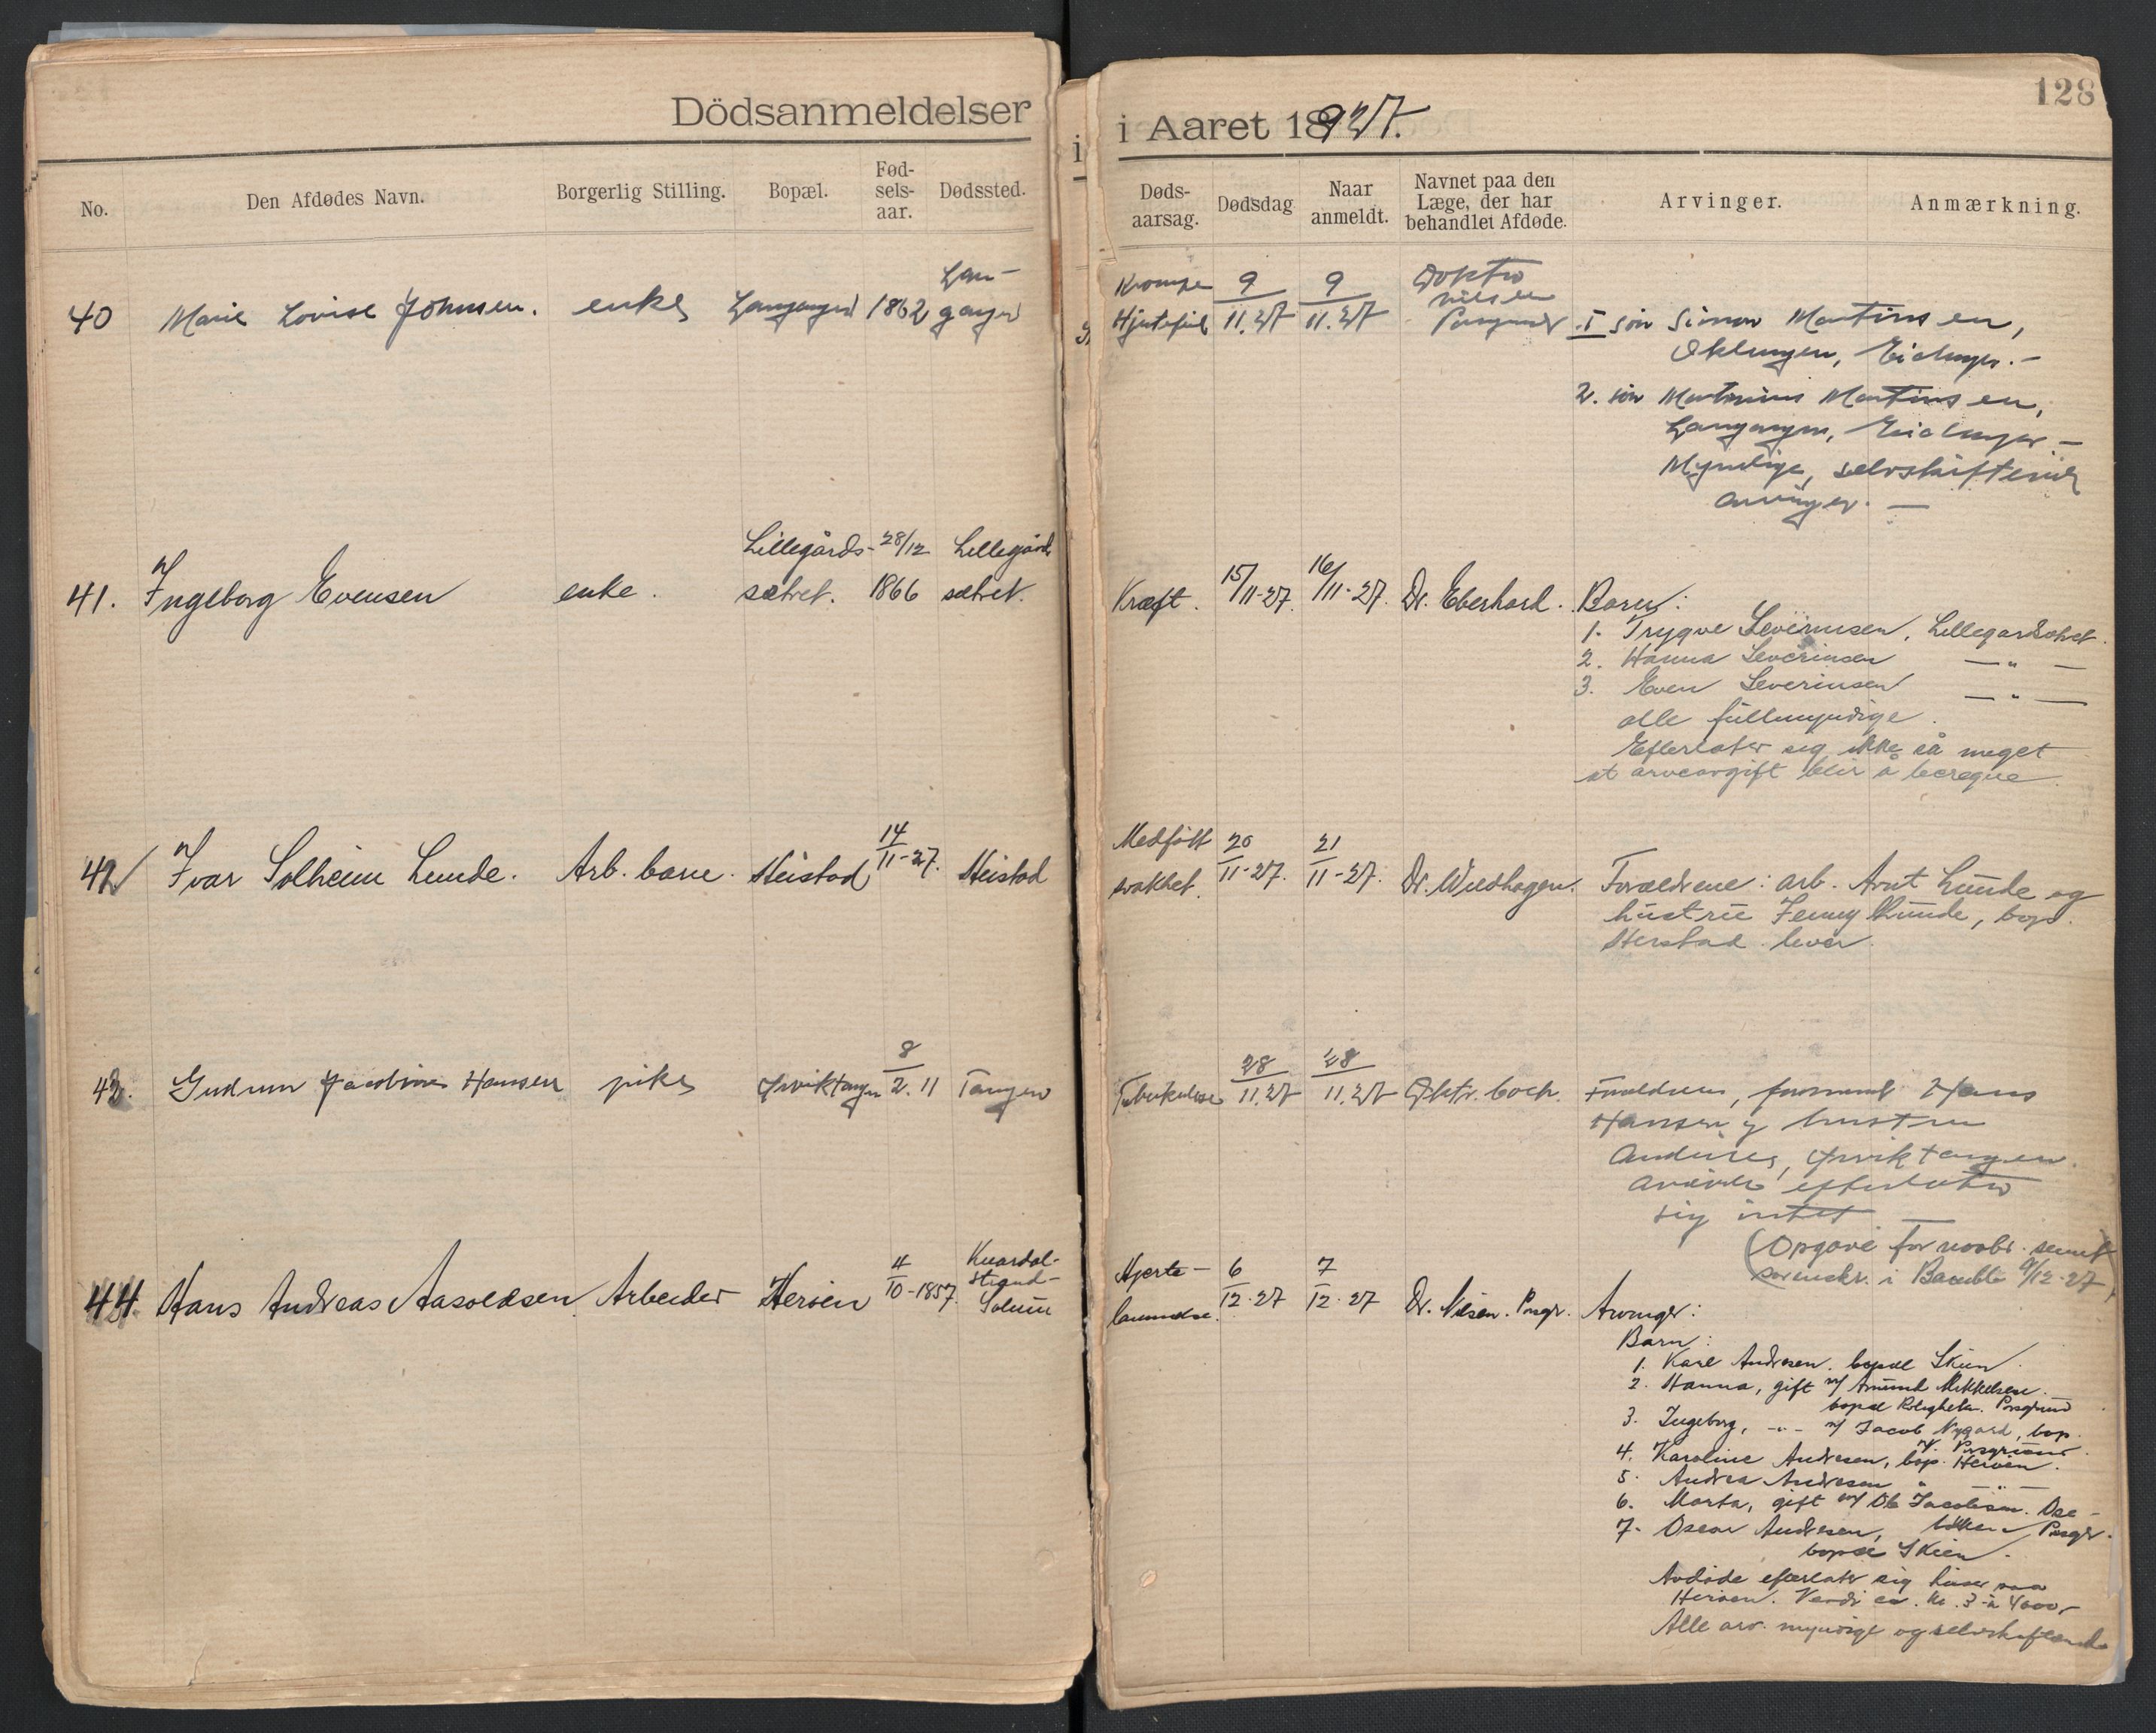 Dödsanmeldelser
No.
Den Afdødes Navn.
Borgerlig Stilling.
Bopæl.
Fød-
sels-
aar.
Dødssted.
40
Marie Lovise Johnsen.
enke
Langangen
1862
Lan-
gangen
41.
Ingeborg Evensen
enke.
Lillegårds-
sætret.
28/12
1866
Lillegårds
sætret.
42
Ivar Solheim Lunde.
Arb. barn.
Heistad
14/11-27.
Heistad
43.
Gudrun Jacobine Hansen
pike
Ørviktangen
8/2. 11
Tangen
44.
Hans Andreas Aasoldsen
Arbeider
Herøen
4/10-1857.
Knardal-
strand-
Solum
128
i Aaret 1927.
Døds-
aarsag.
Dødsdag
Naar
anmeldt.
Navnet paa den
Læge, der har
behandlet Afdøde.
Arvinger.
Anmærkning.
9/11.27
9/11.27
Doktor
Nilsen
Porsgrund
1 søn Simon Martinsen,
Oklungen, Eidanger. -
2. søn Martinius Martinsen,
Langangen, Eidanger -
Myndige, selvskiftende
arvinger. -
Kræft.
15/11-27.
16/11-27.
Dr. Eberhard.
Barn:
1. Trygve Severinsen, Lillegardsætret.
2. Hanna Severinsen — " —
3. Even Severinsen — " —
alle fullmyndige.
Efterlater sig ikke så meget
at arveavgift blir å beregne.
Medfødt
svakhet.
20/11-27.
21/11-27.
Dr. Wildhagen.
Forældrene: arb. Arnt Lunde og
hustru Jenny Lunde, bop.
Herstad lever.
Tuberkulose
28/11.27
28/11.27
Dktr. Coch.
Forældrene, formand Hans
Hansen og hustru
Andrine, Ørviktangen.
Avdøde efterlater
sig intet
(Opgave for
sorenskr. i Bamble 9/12-27)
Hjerte-
lammelse.
6/12-27
7/12-27
Dr. Nilsen. Porsgr.
Arvinger:
Barn:
1. Karl Andresen. bopæl Skien.
2. Hanna, gift m/ Amund Mikkelsen.
bopæl Roligheten. Porsgrund
3. Ingeborg, -"- m/ Jacob Nygard, bop.
Porsgrund.
4. Karoline Andresen, bop. Herøen.
5. Andrea Andresen " — " —
6. Marta, gift m/ Ole Jacobsen.
7. Oscar Andresen, Porsgr.
bopæl Skien.
Avdøde efterlater sig huset paa
Herøen. Verdi ca. kr. 3 à 4000,-
Alle arv. myndige og selvskiftende